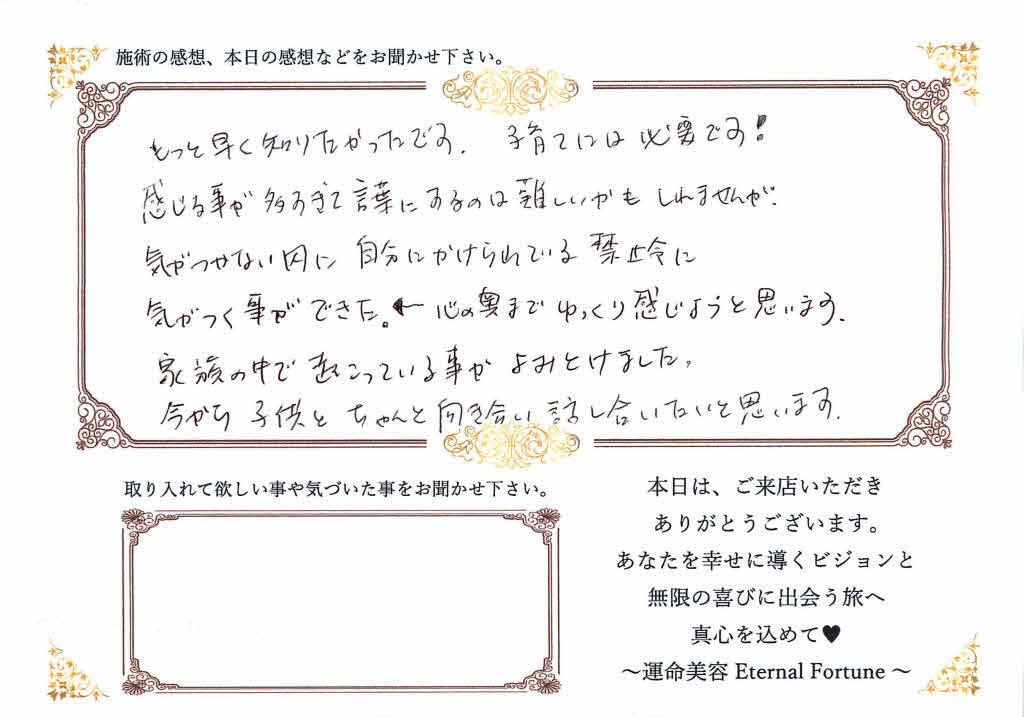 施術の感想、本日の感想などをお聞かせ下さい。
もっと早く知りたかったです. 子育てには必要です!
感じる事が多すぎて言葉にするのは難しいかもしれませんが.
気がつせない内に自分にかけられている禁止令に
気がつく事ができた。← 心の奥までゆっくり感じようと思います.
家族の中で起こっている事がよみとけました。
今から子供とちゃんと向き合い話し合いたいと思います.
取り入れて欲しい事や気づいた事をお聞かせ下さい。
本日は、ご来店いただき
ありがとうございます。
あなたを幸せに導くビジョンと
無限の喜びに出会う旅へ
真心を込めて♥
～運命美容 Eternal Fortune ～